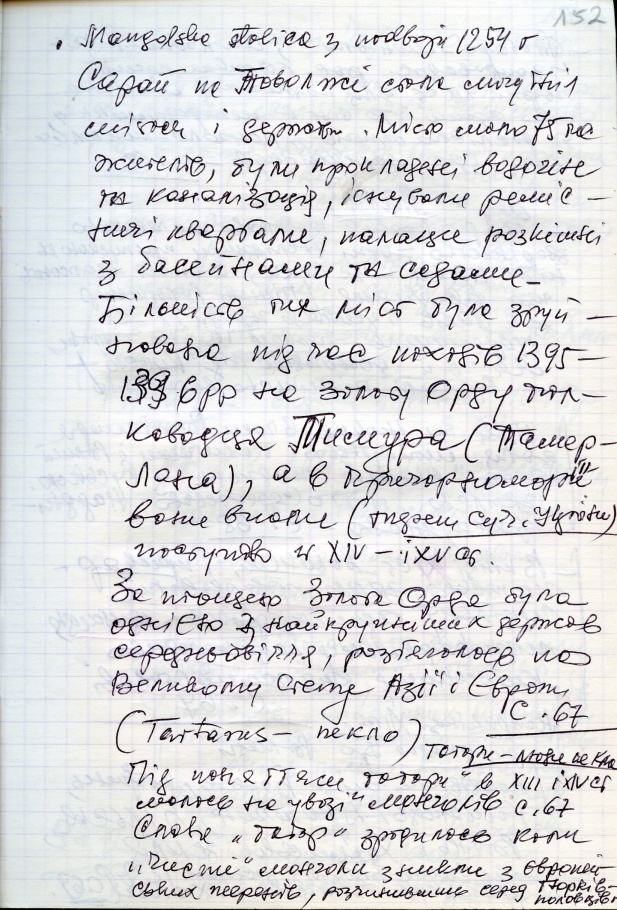 152
. Mangolska stolica з подвоїн 1254 г
Сарай на Поволжі стала могутнім
містом і державою. Місто мало 75 тис
жителів, були прокладені водогін
та каналізація, існували реміс –
ничі квартали, палаци розкішні
з басейнами та садами.
Більшість тих міст була зруй –
нована під час походів 1395 –
1396 рр на Золоту Орду пол-
ководця Тимура (Тамер-
лана), а в Причорномор'ї
вони (південь суч. України)
поступово в XIV – і XV ст.
За площею Золота Орда була
однією з найкрупніших держав
середньовіччя, розтяглося по
Великому Степу Азії і Європи
С. 67
(Tartarus – пекло) татари – люди пекла
Під поняттям „татари" в XIII і XIV ст
малося на увазі монголів с. 67
Слово „татар" зродилося коли
„чисті" монголи зникли з європей-
ських теренів, розчинившись серед тюрків-
половців